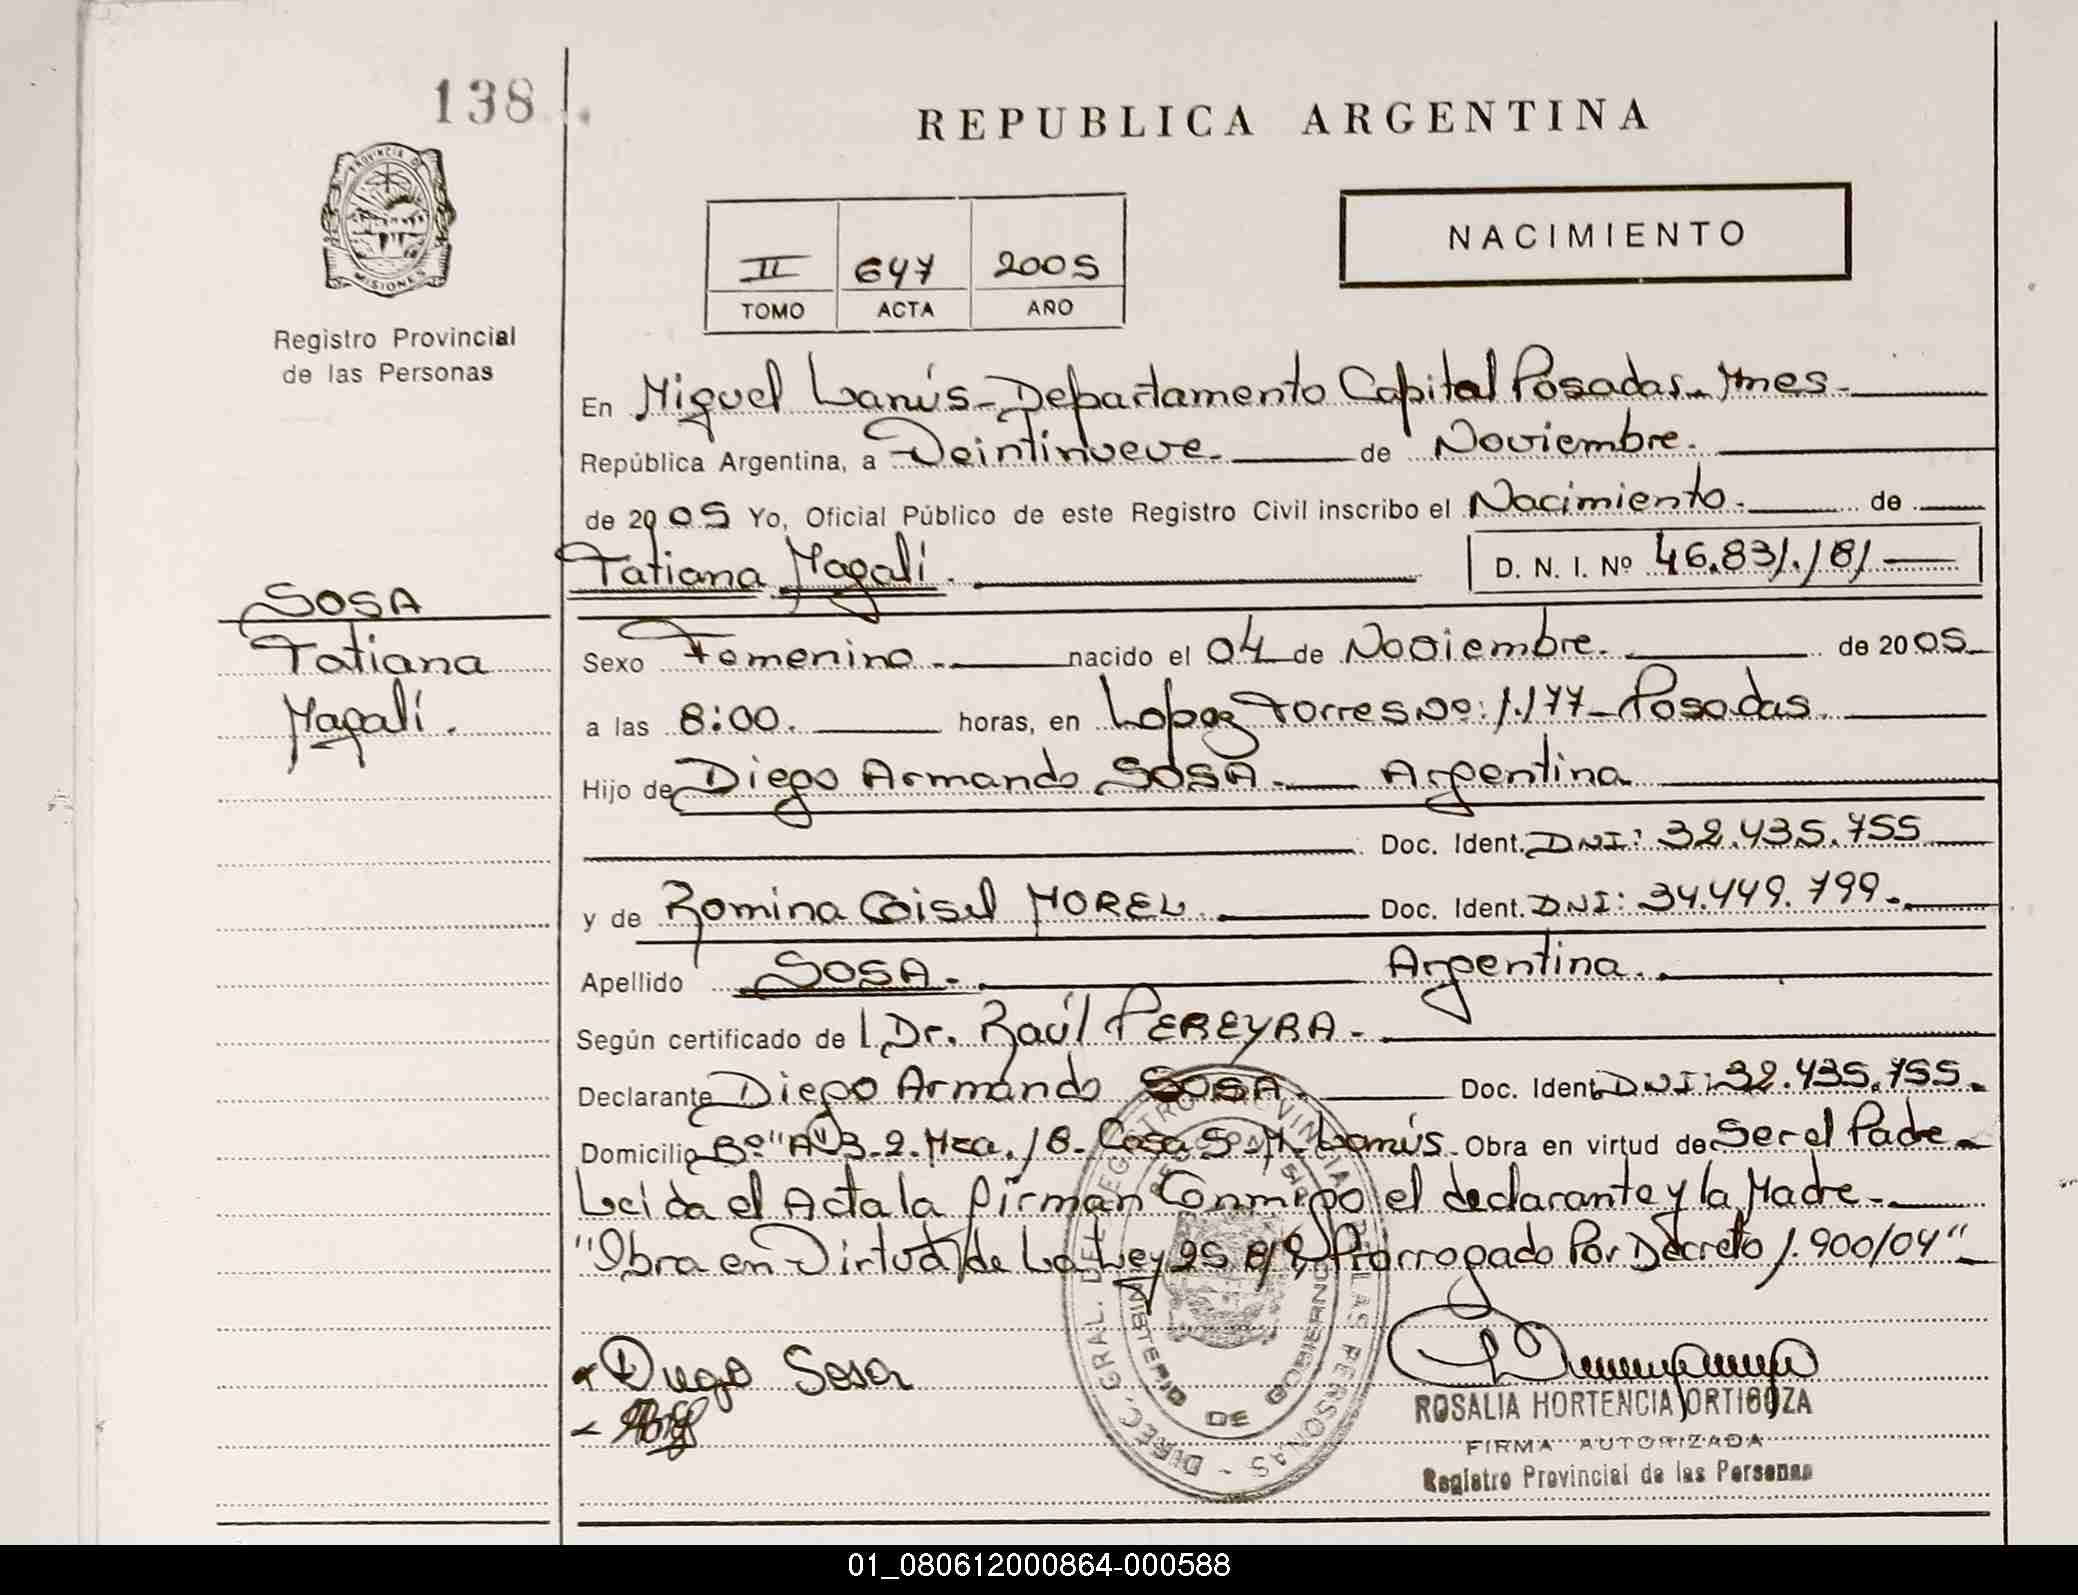 138
REPUBLICA ARGENTINA
PROVINCIA D
MISIONES
Registro Provincial
de las Personas
II 647 2005
TOMO ACTA AÑO
NACIMIENTO
En Miguel Lanús-Departamento Capital Posadas-Mnes-
República Argentina, a Veintinueve. de Noviembre.
de 2005 Yo, Oficial Público de este Registro Civil inscribo el Nacimiento. de
Tatiana Magalí. D. N. I. Nº 46.831.181
SOSA
Tatiana
Magalí.
Sexo Femenino. nacido el 04 de Noviembre. de 2005
a las 8:00. horas, en Lopez Torres Nº: 1.177-Posadas.
Hijo de Diego Armando SOSA. Argentina
Doc. Ident. DNI: 32.435.755
y de Romina Gisel MOREL. Doc. Ident. DNI: 34.449.799.
Apellido SOSA. Argentina.
Según certificado de l Dr. Raúl PEREYRA-
Declarante Diego Armando SOSA. Doc. Ident. DNI: 32.435.755.
Domicilio Bº "A" 3-2. Mza. 18- Casa 5- M. Lanús. Obra en virtud de Ser el Padre
Leida el Acta la firman Conmigo el declarante y la Madre-
"Obra en Virtud de La Ley 25.819 Prorrogado Por Decreto 1.900/04"
Diego Sosa
DIREC. GRAL. DEL REGISTRO PROVINCIAL DE LAS PERSONAS
MINISTERIO DE GOBIERNO
ROSALIA HORTENCIA ORTIGOZA
FIRMA AUTORIZADA
Registro Provincial de las Personas
01_080612000864-000588